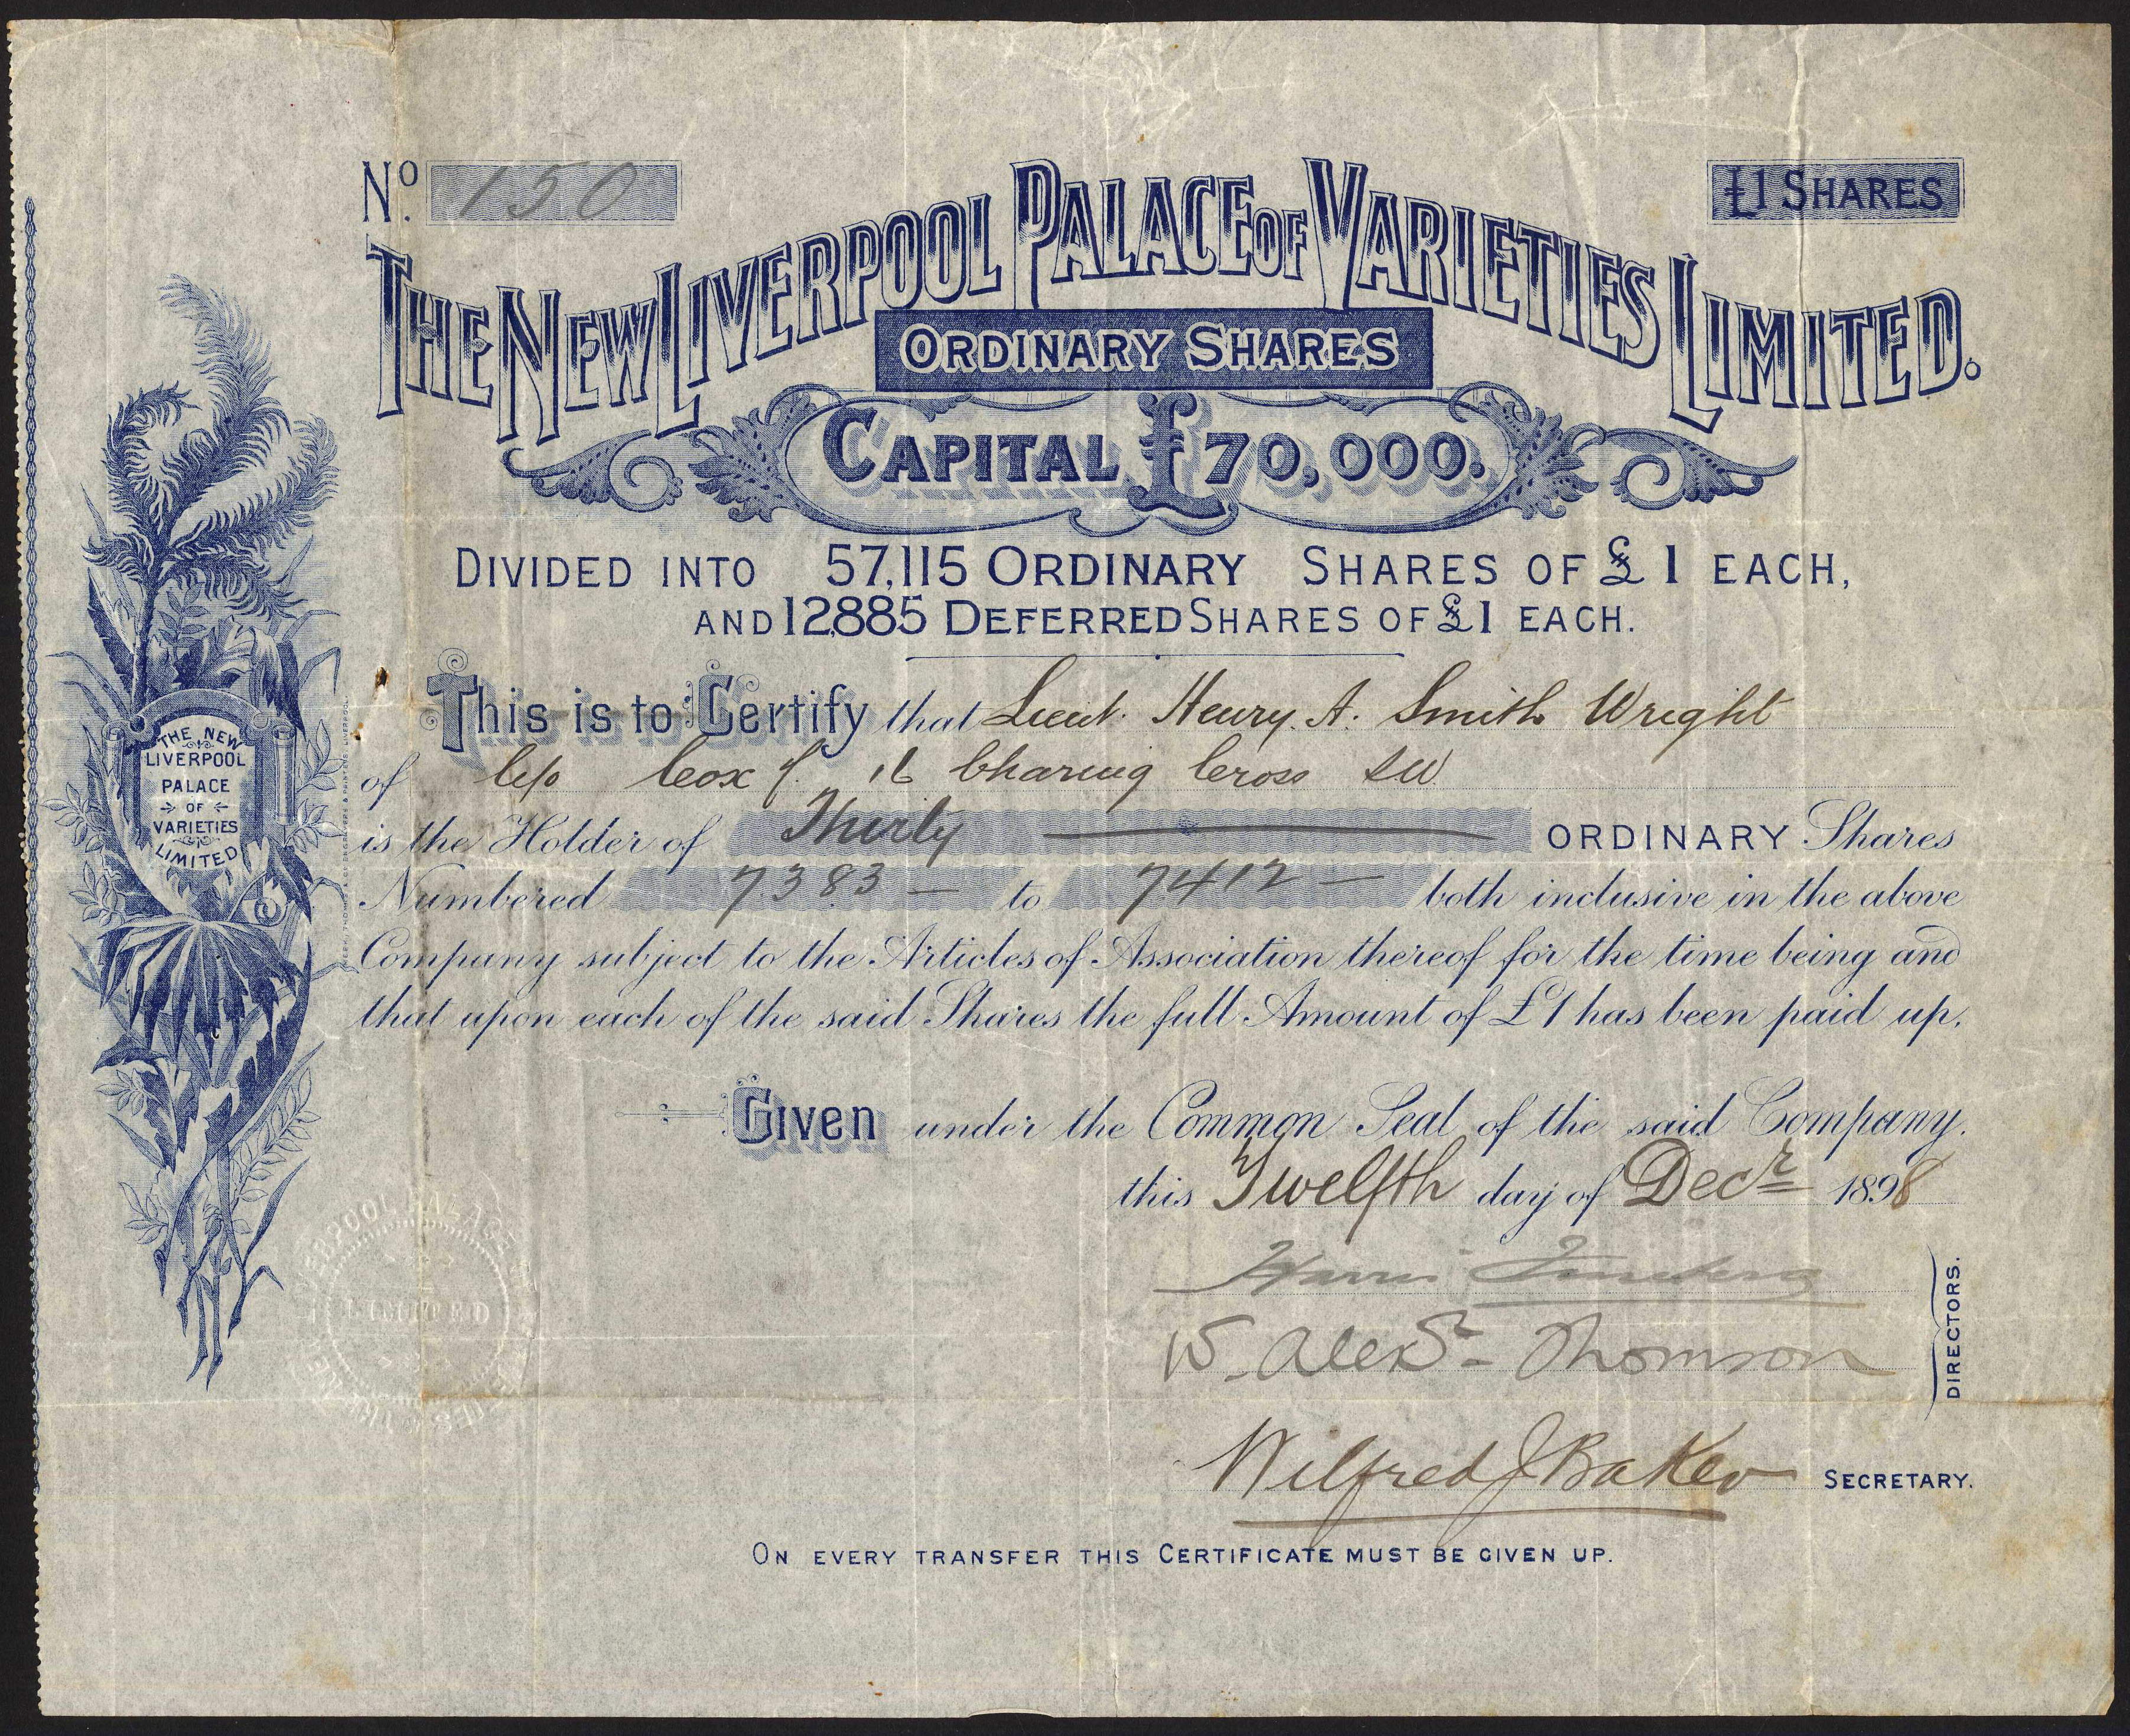 No. 150
£1 SHARES
THE NEW LIVERPOOL PALACE OF VARIETIES LIMITED.
ORDINARY SHARES
CAPITAL £70,000.
DIVIDED INTO 57,115 ORDINARY SHARES OF £1 EACH,
AND 12,885 DEFERRED SHARES OF £1 EACH.
This is to Certify that Lieut. Henry. A. Smith Wright
of c/o Cox & 16 Charing Cross SW
is the Holder of Thirty ORDINARY Shares
Numbered 7383 — to 7412 — both inclusive in the above
Company subject to the Articles of Association thereof for the time being and
that upon each of the said Shares the full Amount of £1 has been paid up.
Given under the Common Seal of the said Company.
this Twelfth day of Decr 1898
Harris
W. Alexr Thomson
DIRECTORS.
Wilfred J Baker SECRETARY.
ON EVERY TRANSFER THIS CERTIFICATE MUST BE GIVEN UP.
THE NEW
LIVERPOOL
PALACE
OF
VARIETIES
LIMITED
LIVERPOOL PALACE
LIMITED